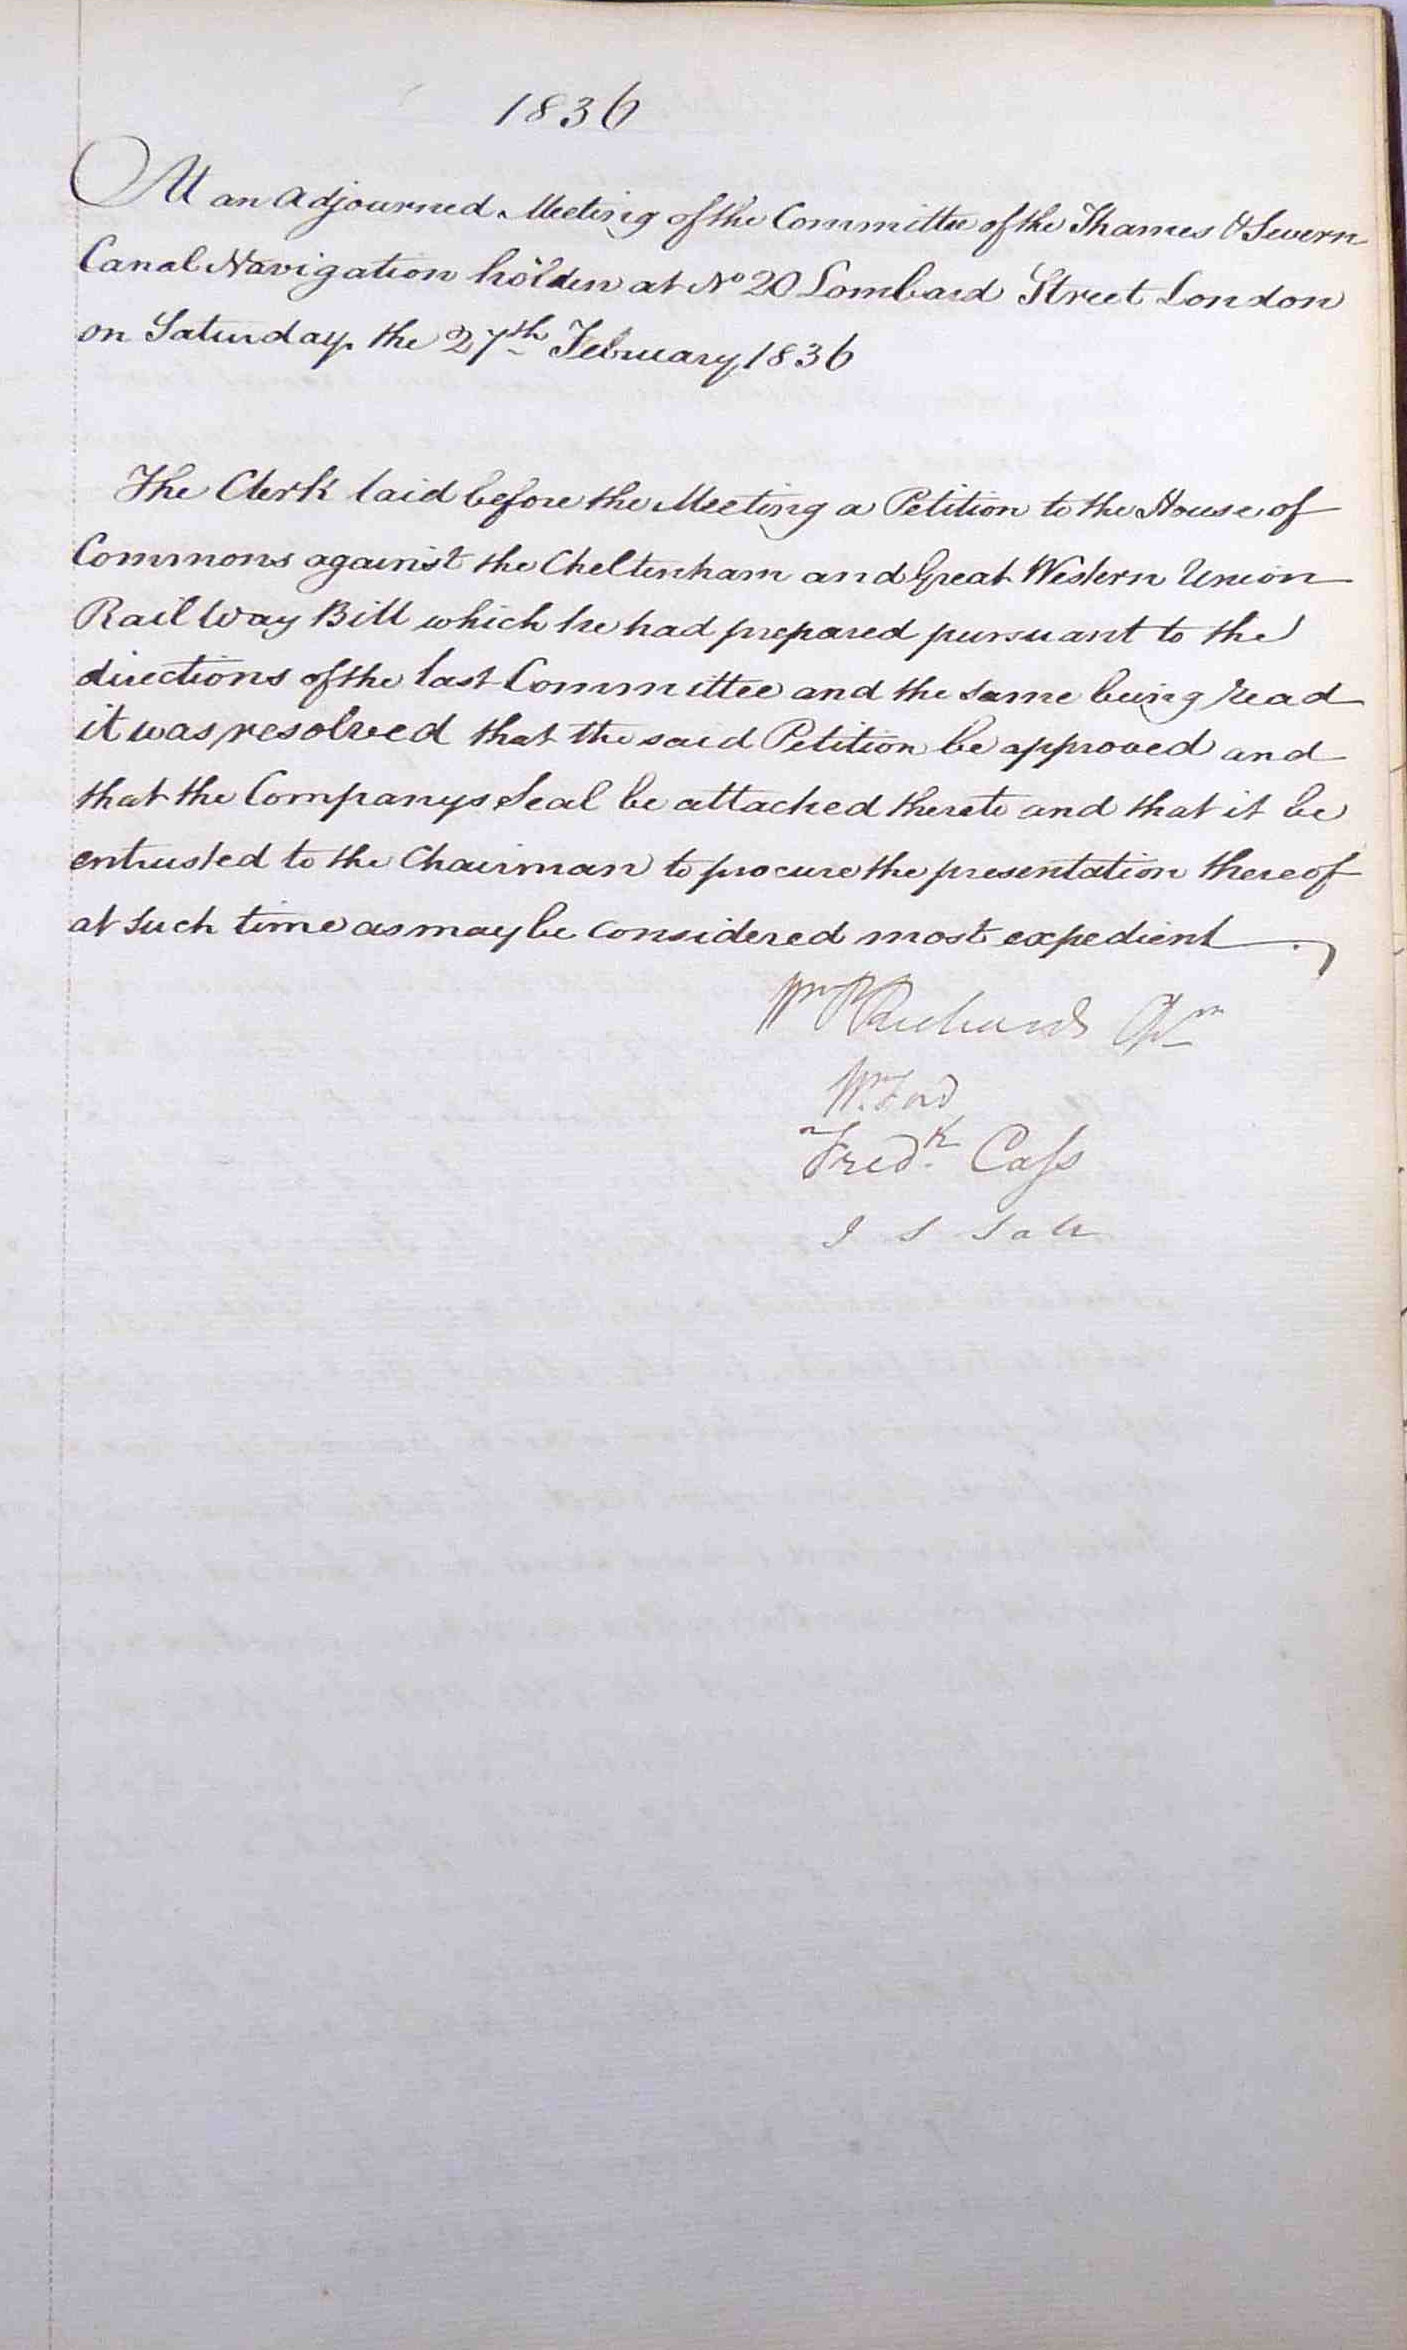 1836
At an adjourned Meeting of the Committee of the Thames & Severn
Canal Navigation holden at No 20 Lombard Street London
on Saturday the 27th February 1836
The Clerk laid before the Meeting a Petition to the House of
Commons against the Cheltenham and Great Western Union
Rail Way Bill which he had prepared pursuant to the
directions of the last Committee and the same being read
it was resolved that the said Petition be approved and
that the Companys Seal be attached thereto and that it be
entrusted to the Chairman to procure the presentation thereof
at such time as may be considered most expedient
Wm Richards Chn
Wm Ford
Fredk Cass
J S